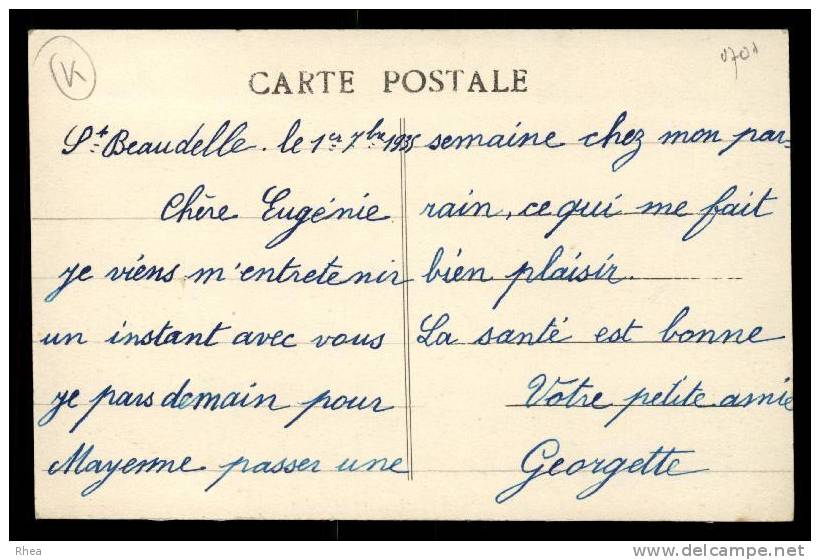 K
0701
CARTE POSTALE
St Beaudelle. le 1er 7bre 1935
Chère Eugénie
je viens m'entretenir
un instant avec vous
je pars demain pour
Mayenne passer une
semaine chez mon par-
rain, ce qui me fait
bien plaisir.
La santé est bonne
Votre petite amie
Georgette
Rhea
www.delcampe.net